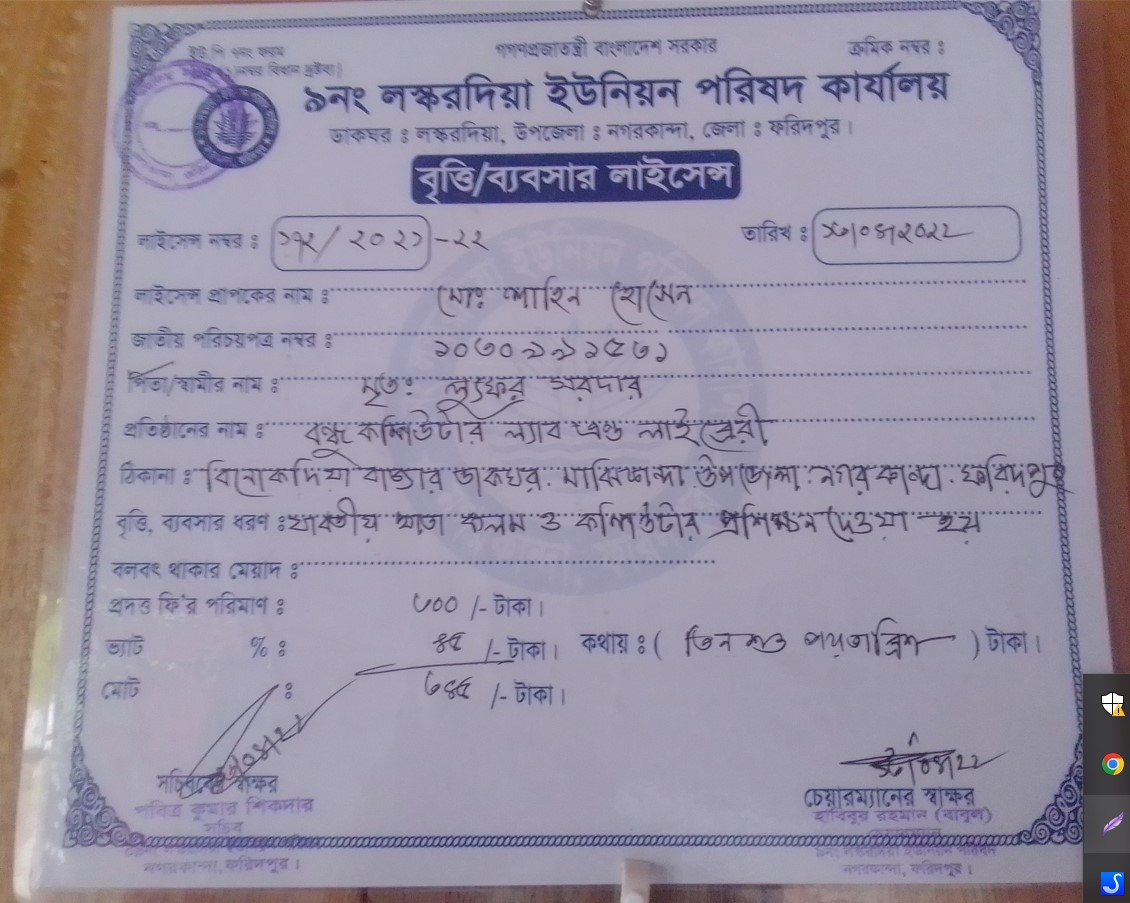 গণপ্রজাতন্ত্রী বাংলাদেশ সরকার
ক্রমিক নম্বর :
৯নং লস্করদিয়া ইউনিয়ন পরিষদ কার্যালয়
ডাকঘর : লস্করদিয়া, উপজেলা : নগরকান্দা, জেলা : ফরিদপুর।
বৃত্তি/ব্যবসার লাইসেন্স
লাইসেন্স নম্বর : /২০২১-২২ তারিখ :
লাইসেন্স প্রাপকের নাম : মোঃ শাহিন হোসেন
জাতীয় পরিচয়পত্র নম্বর :
পিতা/স্বামীর নাম : মৃতঃ সরদার
প্রতিষ্ঠানের নাম : বন্ধু কম্পিউটার ল্যাব এন্ড লাইব্রেরী
ঠিকানা : বিনোকদিয়া বাজার ডাকঘর. উপজেলা: নগরকান্দা. ফরিদপুর
বৃত্তি, ব্যবসার ধরণ : যাবতীয় খাতা কলম ও কম্পিউটার প্রশিক্ষন দেওয়া হয়
বলবৎ থাকার মেয়াদ :
প্রদত্ত ফি'র পরিমাণ : ৩০০ /- টাকা।
ভ্যাট % : ৪৫ /- টাকা। কথায় : ( তিন শত পয়তাল্লিশ ) টাকা।
মোট : ৩৪৫ /- টাকা।
সচিবের স্বাক্ষর
পবিত্র কুমার শিকদার
সচিব
নগরকান্দা, ফরিদপুর।
চেয়ারম্যানের স্বাক্ষর
হাবিবুর রহমান (বাবুল)
নগরকান্দা, ফরিদপুর।